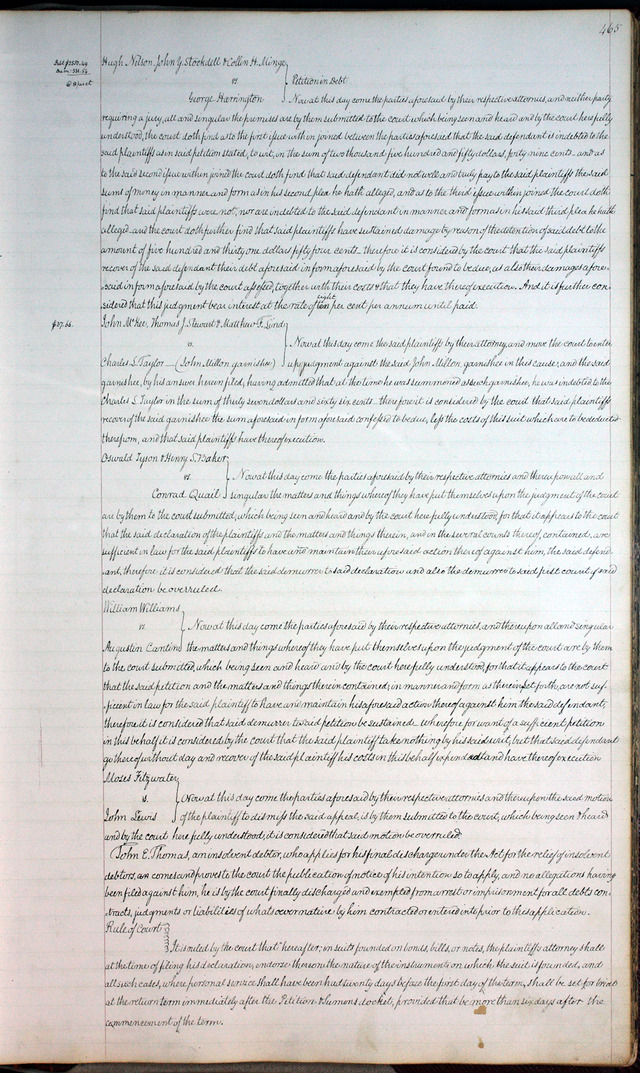 465
Debt $2550.49
Dam. 531.54
@ 8 pr ct
Hugh Nelson, John G Stockdell & Collin H. Minge
vs Petition in Debt
George Harrington Now at this day come the parties aforesaid by their respective attornies, and neither party
requiring a jury, all and singular the premises are by them submitted to the court which being seen and heard and by the court here fully
understood, the court doth find as to the first issue within joined between the parties aforesaid that the said defendant is indebted to the
said plaintiffs as in said petition stated, to wit, in the sum of two thousand five hundred and fifty dollars, forty nine cents – and as
to the said second issue within joined the court doth find that said defendant did not well and truly pay to the said plaintiffs the said
sums of money in manner and form as in his second plea he hath alleged, and as to the third issue within joined the court doth
find that said plaintiffs were not, nor are indebted to the said defendant in manner and form as in his said third plea he hath
alleged – and the court doth further find that said plaintiffs have sustained damage by reason of the detention of said debt to the
amount of five hundred and thirty one dollars fifty four cents – therefore it is considered by the court that the said plaintiffs
recover of the said defendant their debt aforesaid in form aforesaid by the court found to be due, as also their damages afore-
said in form aforesaid by the court assessed, together with their costs & that they have thereof execution. And it is further con-
sidered that this judgment bear interest at the rate of ten eight per cent per annum until paid.
$37.66. John McKee, Thomas J Stewart & Matthew F. Lind
vs. Now at this day come the said plaintiffs by their attorney, and move the court to enter
Charles L Taylor – (John Milton garnishee) up judgment against the said John Milton, garnishee in this cause, and the said
garnishee, by his answer herein filed, having admitted that at the time he was summoned as such garnishee, he was indebted to the
Charles L Taylor in the sum of thirty seven dollars and sixty six cents – therefore it is considered by the court that said plaintiffs
recover of the said garnishee the sum aforesaid in form aforesaid confessed to be due, less the costs of this suit which are to be deducted
therefrom, and that said plaintiffs have thereof execution.
Oswald Tyson & Henry S. Baker
vs. Now at this day come the parties aforesaid by their respective attornies and thereupon all and
Conrad Quail singular the matters and things whereof they have put themselves upon the judgment of the court
are by them to the court submitted, which being seen and heard and by the court here fully understood, for that it appears to the court
that the said declaration of the plaintiffs and the matters and things therein, and in the several counts thereof, contained, are
sufficient in law for the said plaintiffs to have and maintain their aforesaid action thereof against him, the said defend-
ant, therefore it is considered that the said demurrer to said declaration and also the demurrer to said first count of said
declaration be overruled.
William Williams
vs. Now at this day come the parties aforesaid by their respective attornies, and thereupon all and singular
Augustin Cantin the matters and things whereof they have put themselves upon the judgment of the court are by them
to the court submitted, which being seen and heard and by the court here fully understood, for that it appears to the court
that the said petition and the matters and things therein contained, in manner and form as therein set forth, are not suf-
ficient in law for the said plaintiff to have and maintain his aforesaid action thereof against him the said defendant,
therefore it is considered that said demurrer to said petition be sustained – Wherefore for want of a sufficient petition
in this behalf it is considered by the court that the said plaintiff take nothing by his said writ, but that said defendant
go thereof without day and recover of the said plaintiff his costs in this behalf expended and have thereof execution
Moses Fitzwater
vs. Now at this day come the parties aforesaid by their respective attornies and thereupon the said motion
John Lewis of the plaintiff to dismiss the said appeal, is by them submitted to the court, which being seen & heard
and by the court here fully understood, it is considered that said motion be overruled.
John E. Thomas, an insolvent debtor, who applies for his final discharge under the Act for the relief of insolvent
debtors, comes and proves to the court the publication of notice of his intention so to apply, and no allegations having
been filed against him, he is by the court finally discharged and exempted from arrest or imprisonment for all debts con-
tracts, judgments or liabilities of whatsoever nature by him contracted or entered into prior to this application.
Rule of Court
It is ruled by the court that hereafter, in suits founded on bonds, bills, or notes, the plaintiffs attorney shall
at the time of filing his declaration, endorse thereon the nature of the instruments on which the suit is founded, and
all such cases, where personal service shall have been had twenty days before the first day of the term, shall be set for trial
at the return term immediately after the Petition & Sumons docket, provided that be more than six days after the
commencement of the term.